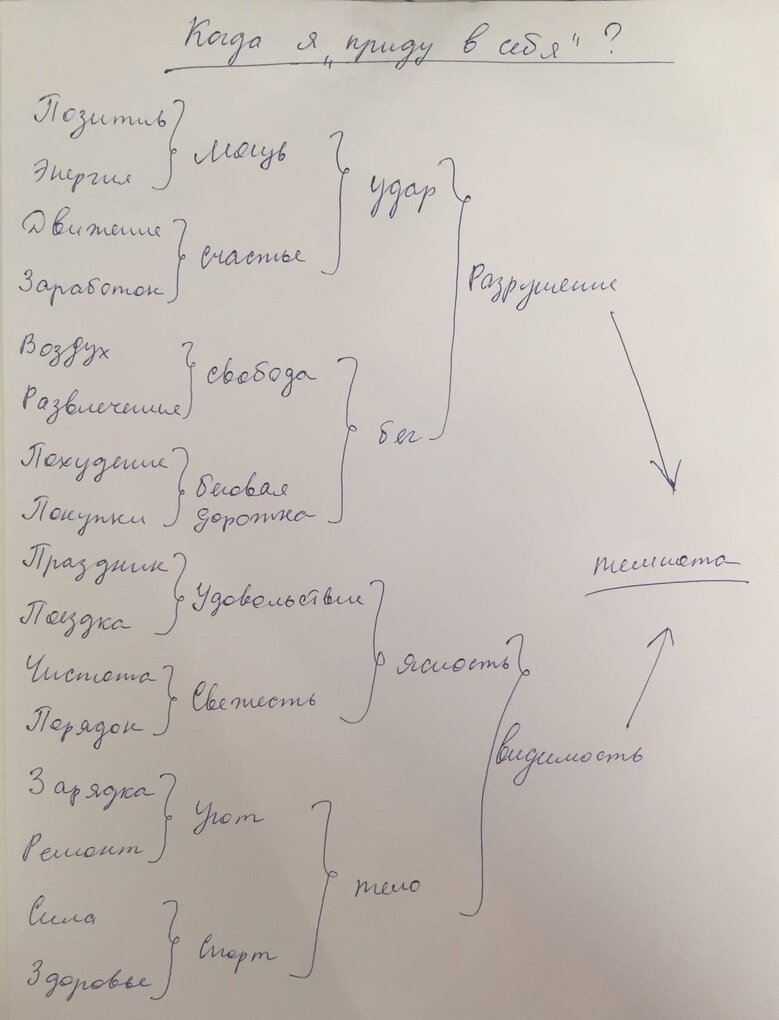 Когда я „приду в себя“?
Позитив
Энергия
Движение
Заработок
Воздух
Развлечение
Похудение
Покупки
Праздник
Поездка
Чистота
Порядок
Зарядка
Ремонт
Сила
Здоровье
Мощь
счастье
свобода
беговая
дорожка
Удовольствие
Свежесть
Уют
Спорт
удар
бег
ясность
тело
Разрушение
видимость
темнота